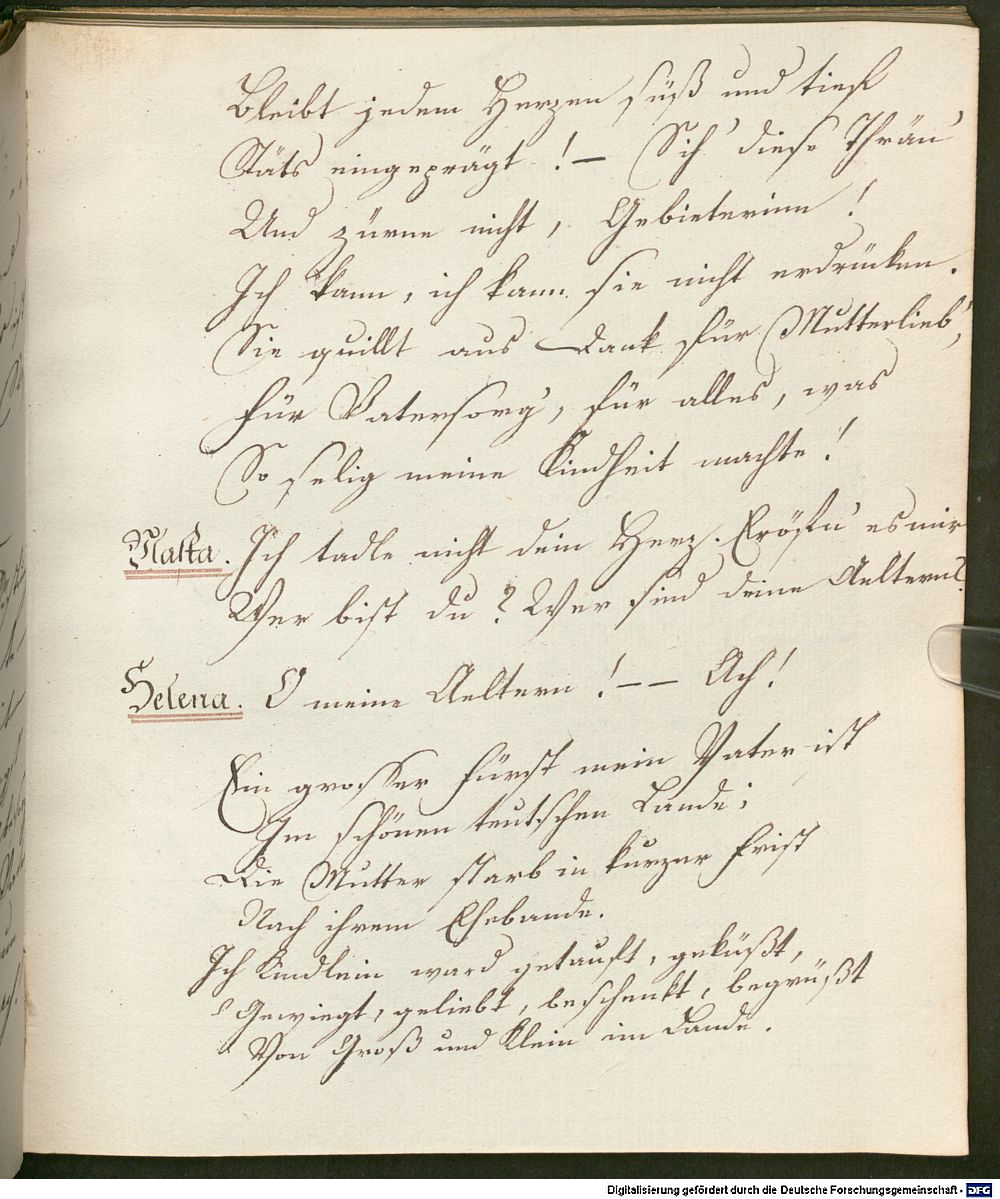 Bleibt jedem Herzen süß und tief
Stäts eingeprägt! – Sieh' diese Thrän'
Und zürne nicht, Gebieterinn!
Ich kann, ich kann sie nicht erdrücken.
Sie quillt aus Dank für Mutterlieb',
Für Vatersorg', für alles, was
So selig meine Kindheit machte!
Maffa. Ich tadle nicht dein Herz. Eröfn' es mir
Wer bist du? Wer sind deine Aeltern?
Helena. O meine Aeltern! – – Ach!
Ein grosser Fürst mein Vater ist
Im schönen teutschen Lande;
Die Mutter starb in kurzer Frist
Nach ihrem Ehebande.
Ich Kindlein ward getauft, geküßt,
Gewiegt, geliebt, beschenkt, begrüßt
Von Groß und Klein im Lande.
Digitalisierung gefördert durch die Deutsche Forschungsgemeinschaft - DFG